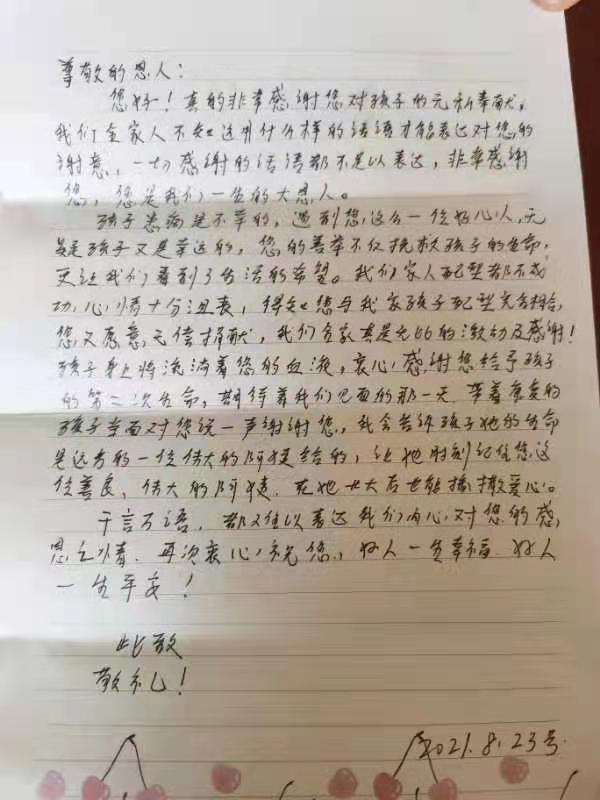 尊敬的恩人：
您好！真的非常感谢您对孩子的无私奉献，
我们全家人不知这用什么样的话语才能表达对您的
谢意，一切感谢的话语都不足以表达，非常感谢
您，您是我们一生的大恩人。
孩子患病是不幸的，遇到您这么一位好心人，无
疑孩子又是幸运的，您的善举不仅挽救孩子的生命，
更让我们看到了生活的希望。我们家人配型都不成
功，心情十分沮丧，得知您与我家孩子配型完全相合，
您又愿意无偿捐献，我们全家真是无比的激动及感谢！
孩子身上将流淌着您的血液，衷心感谢您给予孩子
的第二次生命，期待着我们见面的那一天，带着康复的
孩子当面对您说一声谢谢您，我会告诉孩子她的生命
是远方的一位伟大的阿姨给的，让她时刻记住您这
位善良、伟大的阿姨，在她长大后也能播撒爱心。
千言万语，都难以表达我们内心对您的感
恩之情，再次衷心祝您，好人一生幸福，好人
一生平安！
此致
敬礼！
2021.8.23号